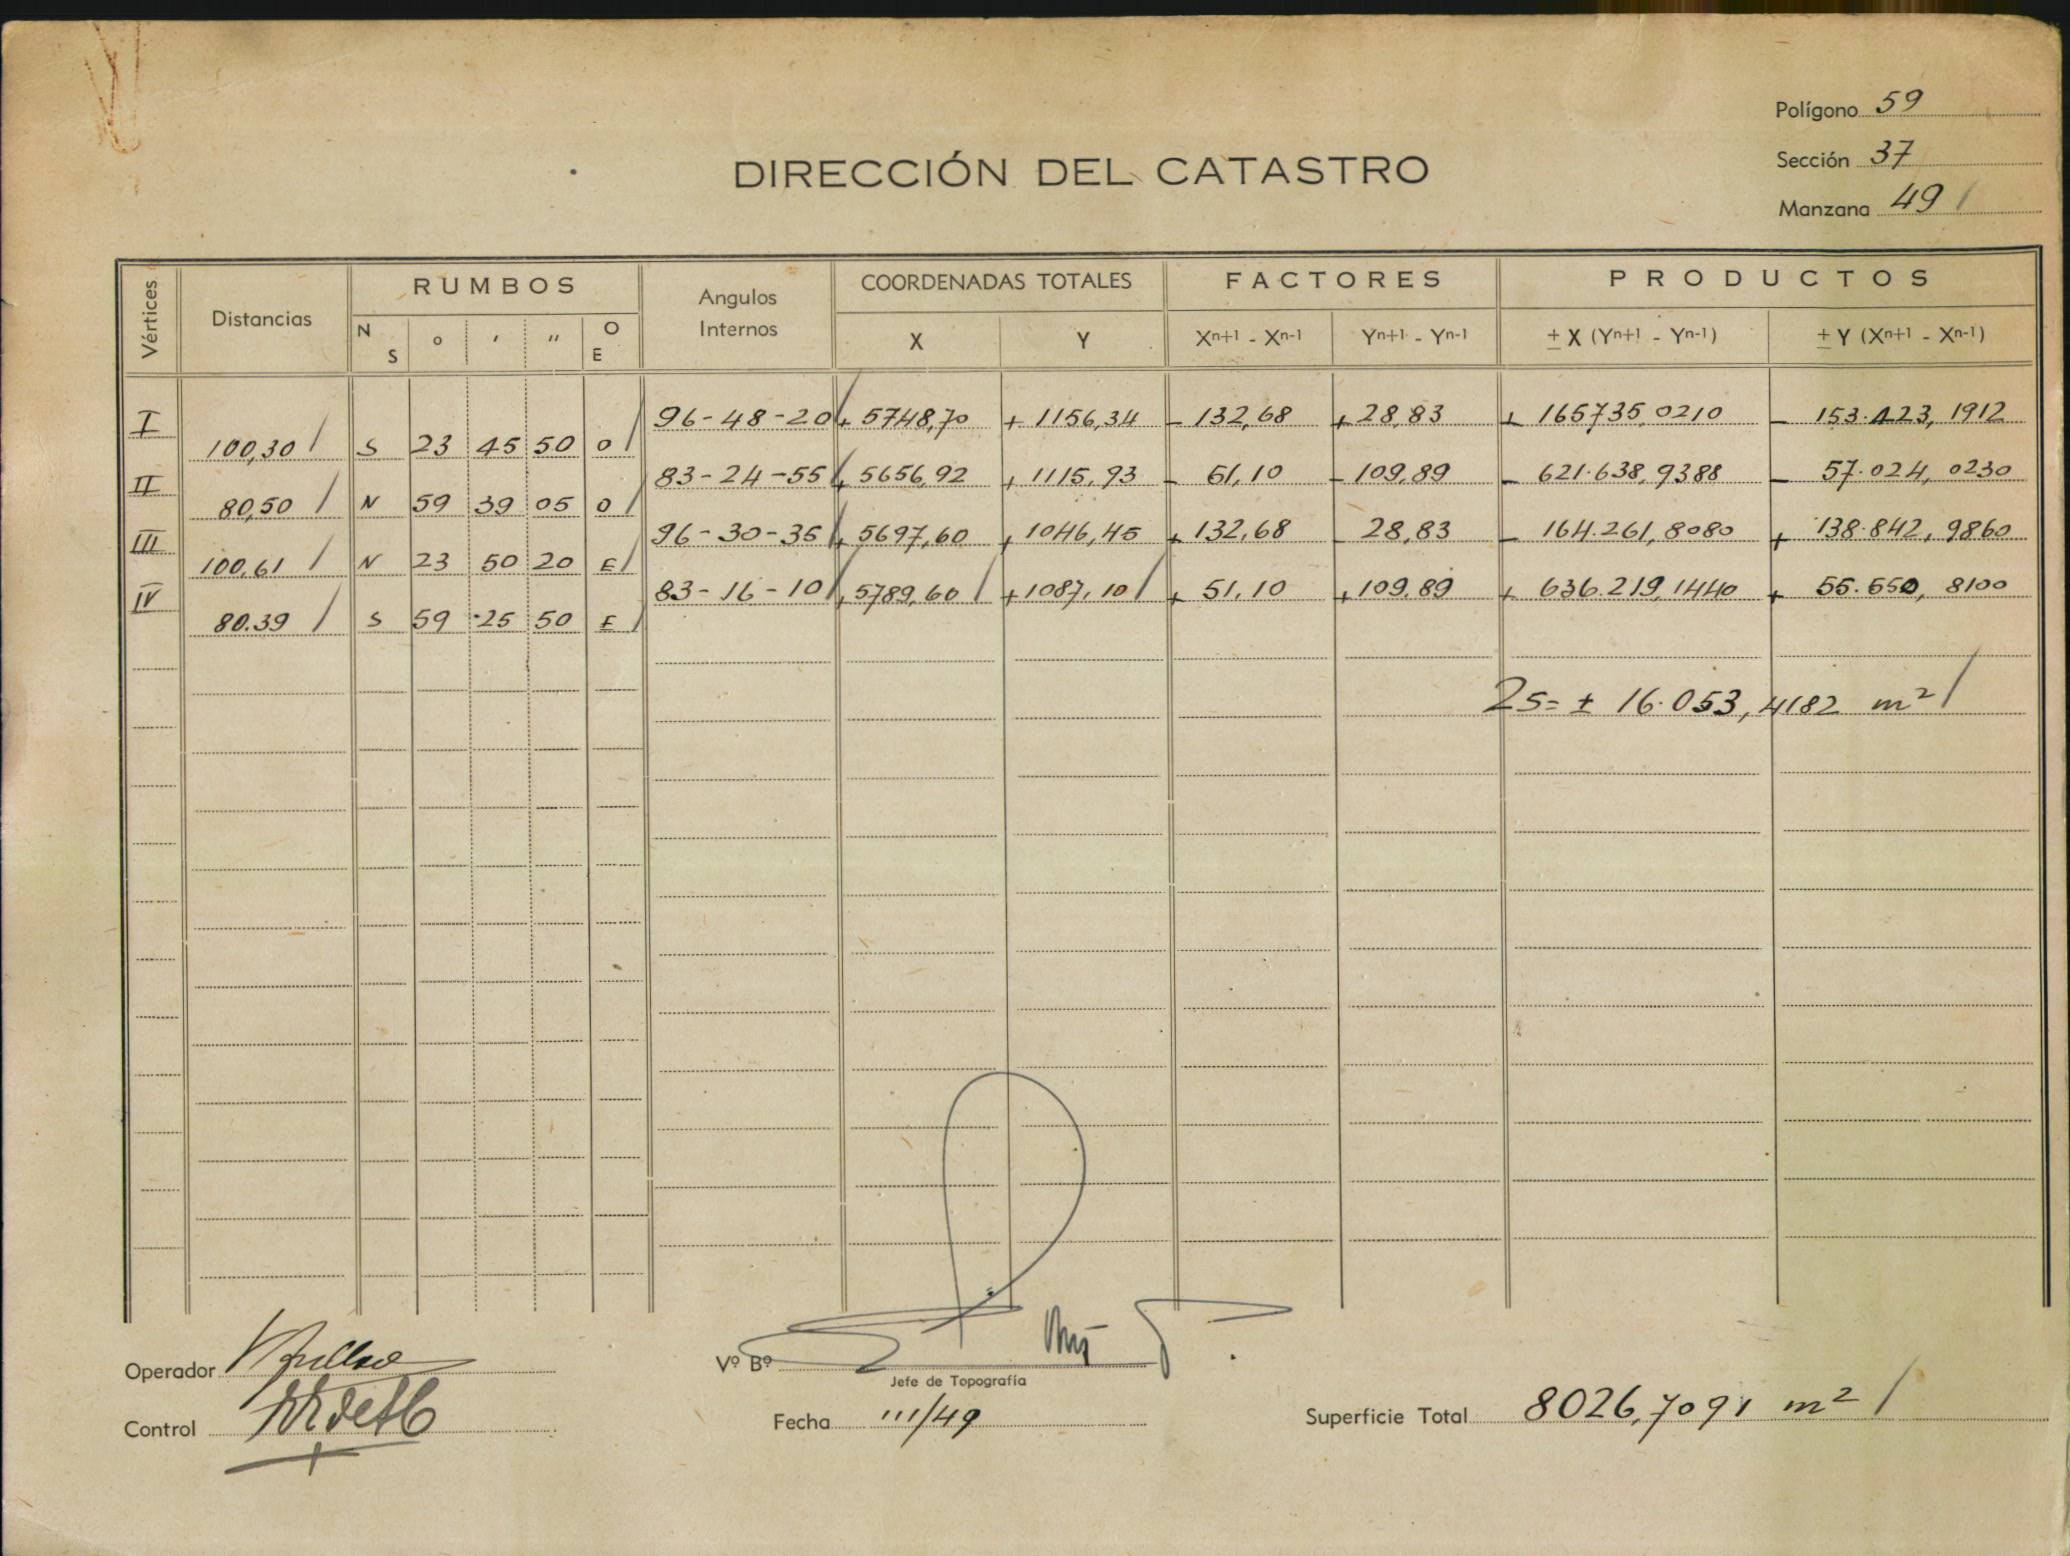 Polígono 59
Sección 37
Manzana 49 /
DIRECCIÓN DEL CATASTRO
Vértices Distancias RUMBOS Angulos Internos COORDENADAS TOTALES FACTORES PRODUCTOS
N S ° ' " O E X Y Xn+1 - Xn-1 Yn+1 - Yn-1 ± X (Yn+1 - Yn-1) ± Y (Xn+1 - Xn-1)
I 96-48-20 / + 5748,70 + 1156,34 - 132,68 + 28,83 + 165735,0210 - 153.423,1912
100,30 / S 23 45 50 O /
II 83-24-55 / + 5656,92 + 1115,93 - 51,10 - 109,89 - 621.638,9388 - 57.024,0230
80,50 / N 59 39 05 O /
III 96-30-35 / + 5697,60 + 1046,45 + 132,68 - 28,83 - 164.261,8080 + 138.842,9860
100,61 / N 23 50 20 E /
IV 83-16-10 / + 5789,60 / + 1087,10 / + 51,10 + 109,89 + 636.219,1440 + 55.550,8100
80.39 / S 59 25 50 E /
2S= ± 16.053,4182 m² /
Operador
Vº Bº
Jefe de Topografía
Control
Fecha III/49
Superficie Total 8026,7091 m² /